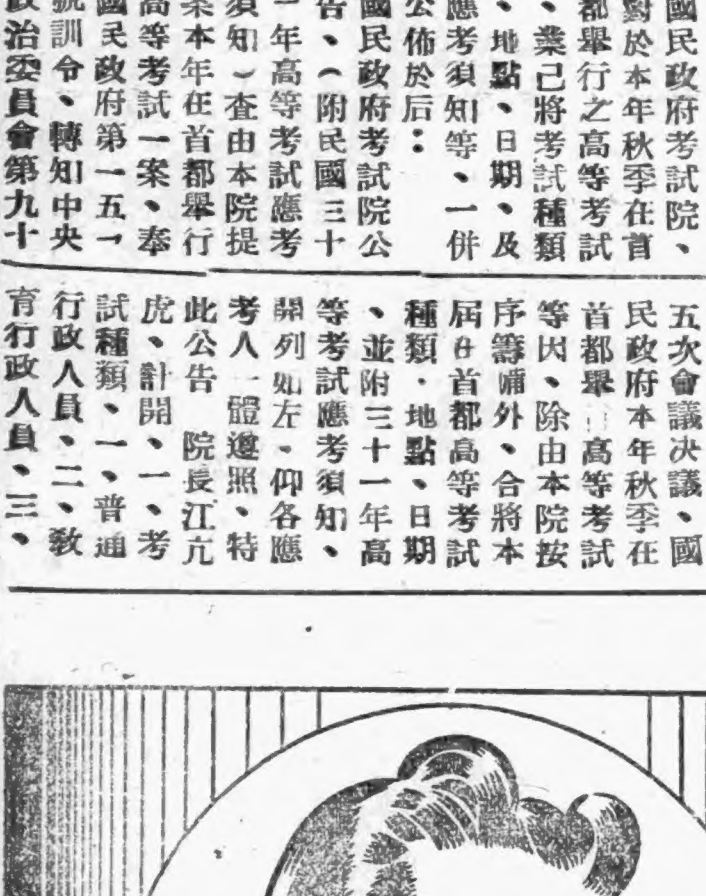 國民政府考試院、
對於本年秋季在首
都舉行之高等考試
、業已將考試種類
、地點、日期、及
應考須知等、一併
公佈於后：
國民政府考試院公
告、（附民國三十
一年高等考試應考
須知）查由本院提
案本年在首都舉行
高等考試一案、奉
國民政府第一五一
號訓令、轉知中央
政治委員會第九十
五次會議决議、國
民政府本年秋季在
首都舉 高等考試
等因、除由本院按
序籌備外、合將本
屆在首都高等考試
種類．地點、日期
、並附三十一年高
等考試應考須知、
開列如左、仰各應
考人一體遵照、特
此公告　院長江亢
虎、計開、一、考
試種類、一、普通
行政人員、二、教
育行政人員、三、